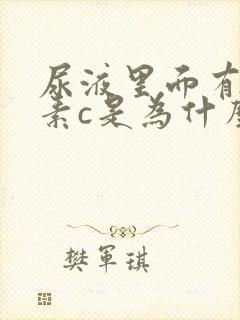 尿液里而有
素c是為什
樊軍琪